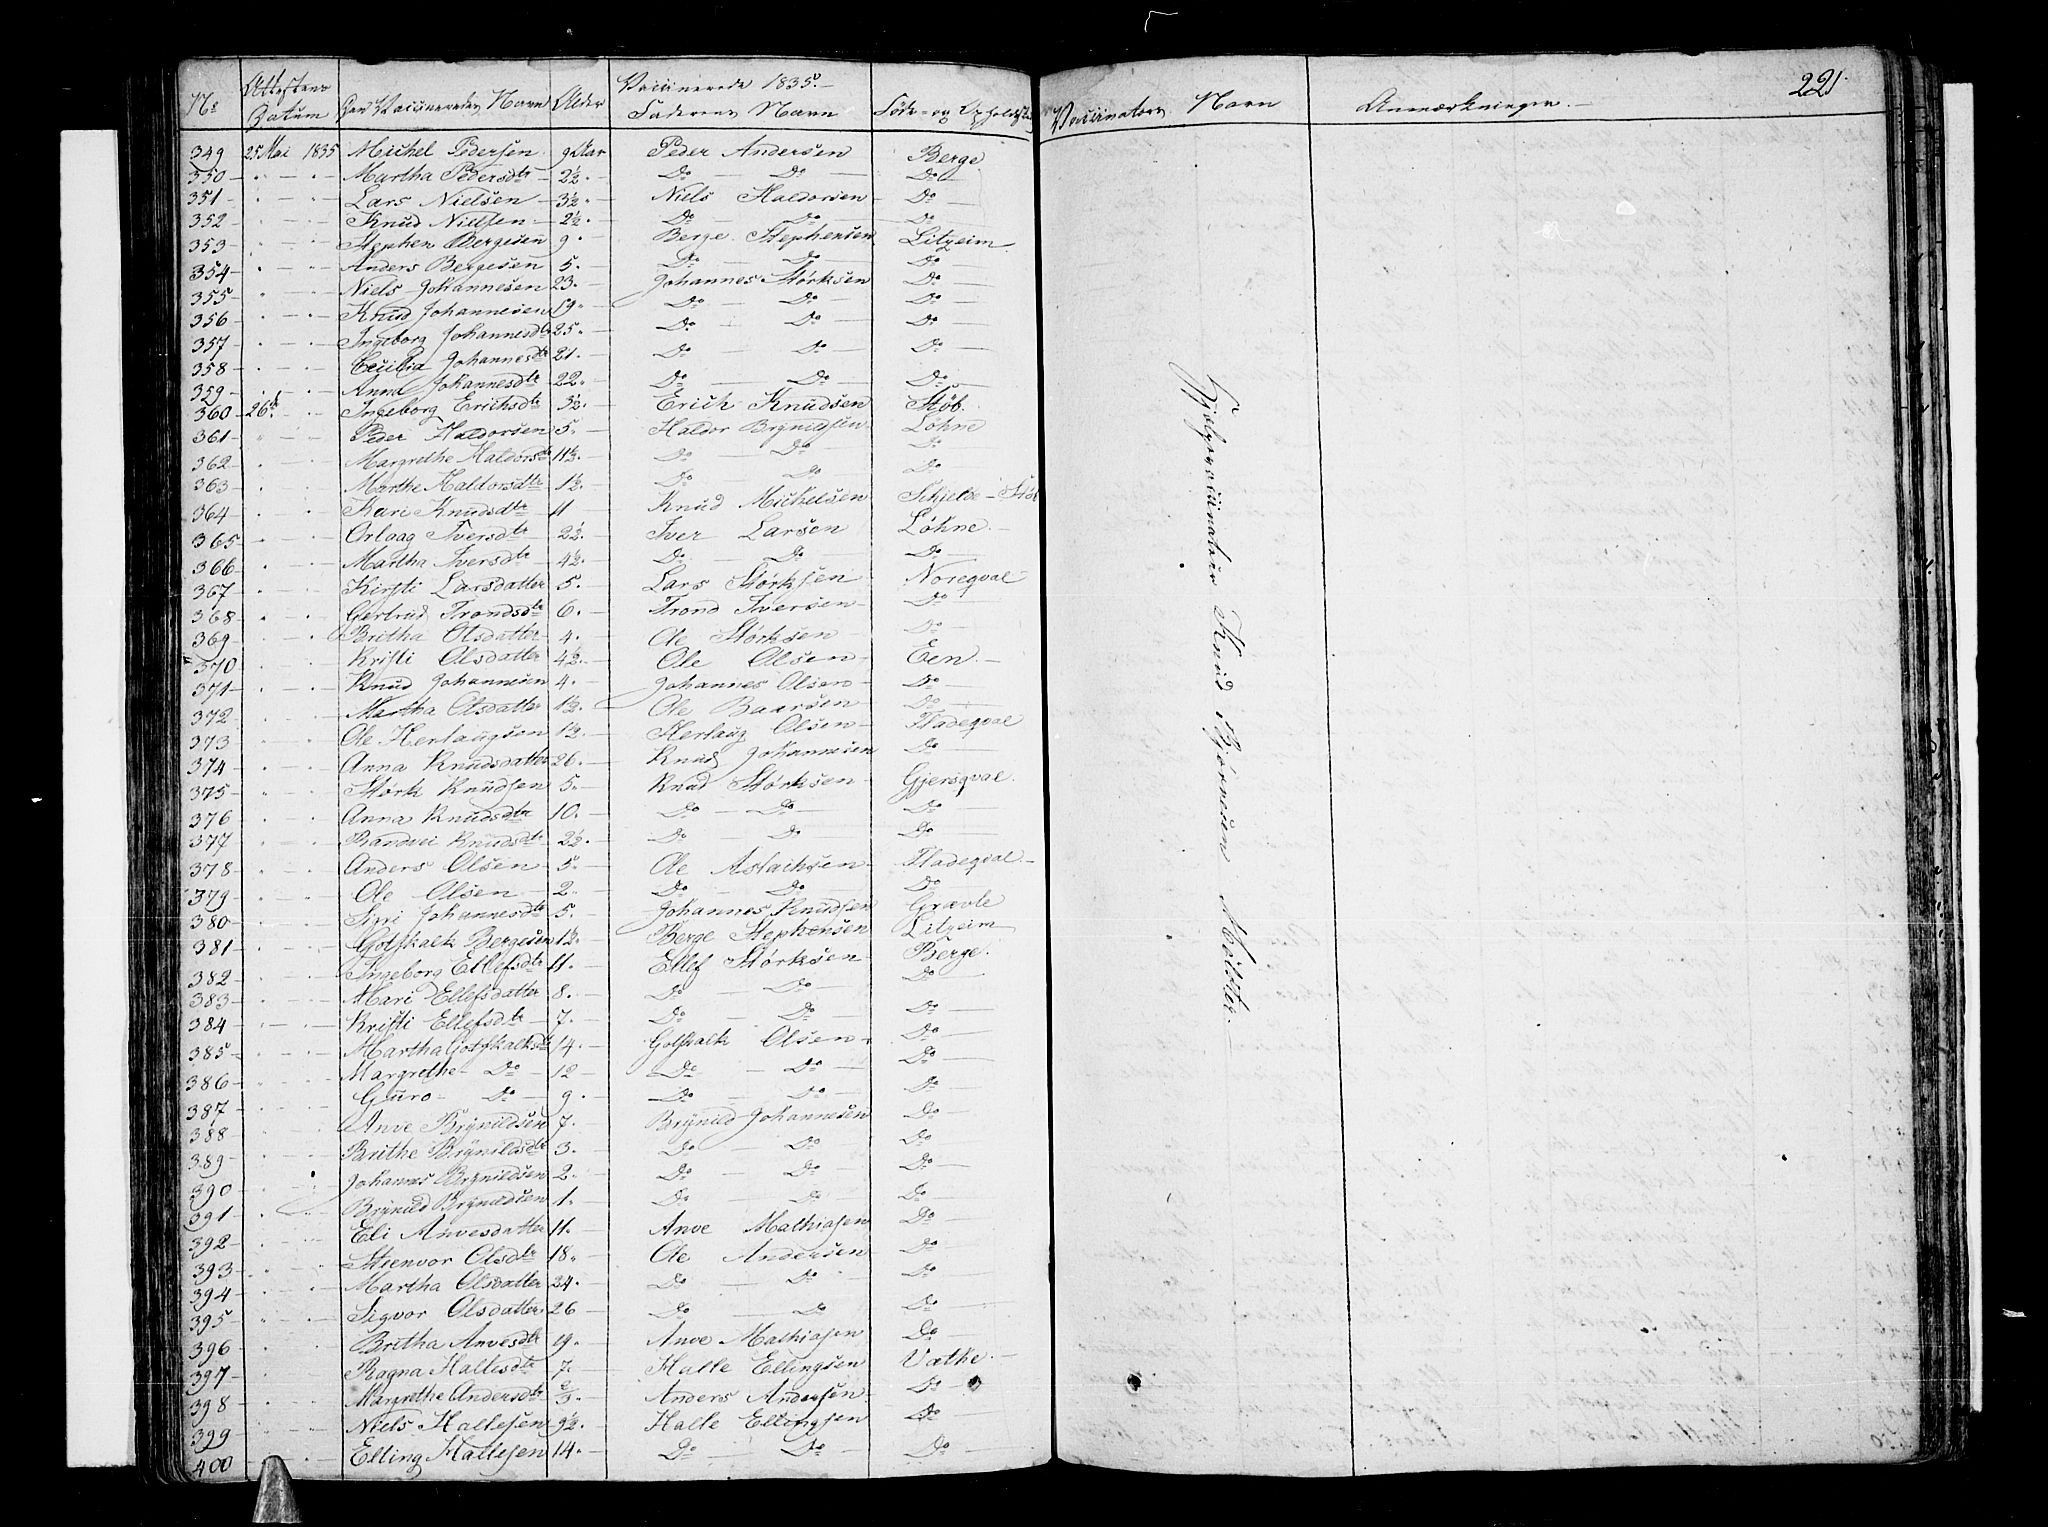 Vaccinerede 1835.
No Attestens Datum Den Vaccineredes Navn Alder Faderens Navn Føde- og Opholdssted Vaccinateurs Navn Anmærkninger. 221.
349 25 Mai 1835 Michel Pedersen 9 Aar Peder Andersen Berge
350 " — " Martha Pedersdtr 2½ Do — Do Do
351 " — " Lars Nielsen 3½ Niels Haldorsen Do
352 " — " Knud Nielsen 2½ Do — Do Do
353 " — " Stephen Bergesen 9 Berge Stephensen Litzeim
354 " — " Anders Bergesen 5 Do — Do Do
355 " — " Niels Johannesen 23 Johannes Størksen Do
356 " — " Knud Johannesen 19 Do — Do Do
357 " — " Ingeborg Johannesdtr 25 Do — Do Do
358 " — " Cecilia Johannesdtr 21 Do — Do Do
359 " — " Anna Johannesdtr 22 Do — Do Do
360 26de " Ingeborg Erichsdtr 3½ Erich Knudsen Støb
361 " — " Peder Haldorsen 5 Haldor Brynildsen Løhne
362 " — " Margrethe Haldorsdtr 11½ Do — Do Do
363 " — " Marthe Haldorsdtr 1½ Do — Do Do
364 " — " Kari Knudsdtr 11 Knud Michelsen Schielde-Støl
365 " — " Orlaag Iversdtr 2½ Iver Larsen Løhne
366 " — " Martha Iversdtr 4½ Do — Do Do
367 " — " Kirsti Larsdatter 5 Lars Størksen Noreqval
368 " — " Gertrud Trondsdtr 6 Trond Iversen Do
369 " — " Britha Olsdatter 4 Ole Størksen Do
370 " — " Kristi Olsdatter 4½ Ole Olsen Een
371 " — " Knud Johannesen 4 Johannes Olsen Do
372 " — " Martha Olsdatter 1½ Ole Baarsen Do
373 " — " Ole Herlaugsen 1½ Herlaug Olsen Fladeqval
374 " — " Anna Knudsdatter 26 Knud Johannesen Do
375 " — " Størk Knudsen 5 Knud Størksen Gjersqval
376 " — " Anna Knudsdtr 10 Do — Do Do
377 " — " Randvei Knudsdtr 2½ Do — Do Do
378 " — " Anders Olsen 5 Ole Aslachsen Fladeqval
379 " — " Ole Olsen 2 Do — Do Do
380 " — " Siri Johannesdtr 5 Johannes Knudsen Grævle
381 " — " Gotskalk Bergesen 1½ Berge Stephensen Litzeim
382 " — " Ingeborg Ellefsdtr 11 Ellef Størksen Berge
383 " — " Mari Ellefsdatter 8 Do — Do Do
384 " — " Kristi Ellefsdtr 7 Do — Do Do
385 " — " Martha Gotskalksdtr 14 Gotskalk Olsen Do
386 " — " Margrethe Do 12 Do — Do Do
387 " — " Guro Do 9 Do — Do Do
388 " — " Anve Brynildsen 7 Brynild Johannesen Do
389 " — " Brithe Brynildsdtr 3 Do — Do Do
390 " — " Johannes Brynildsen 2 Do — Do Do
391 " — " Brynild Brynildsen 1 Do — Do Do
392 " — " Eli Anvesdatter 11 Anve Mathiasen Do
393 " — " Steenvor Olsdtr 18 Ole Andersen Do
394 " — " Martha Olsdatter 24 Do — Do Do
395 " — " Sigvor Olsdatter 26 Do — Do Do
396 " — " Britha Anvesdtr 19 Anve Mathiasen Do
397 " — " Ragna Hallesdtr 7 Halle Ellingsen Væthe
398 " — " Margrethe Andersdtr Anders Andersen Do
399 " — " Niels Hallesen 9½ Halle Ellingsen Do
400 " — " Elling Hallesen 14 Do — Do Do
Hjelpevaccinateur Knud Bjørnsen Mølster.